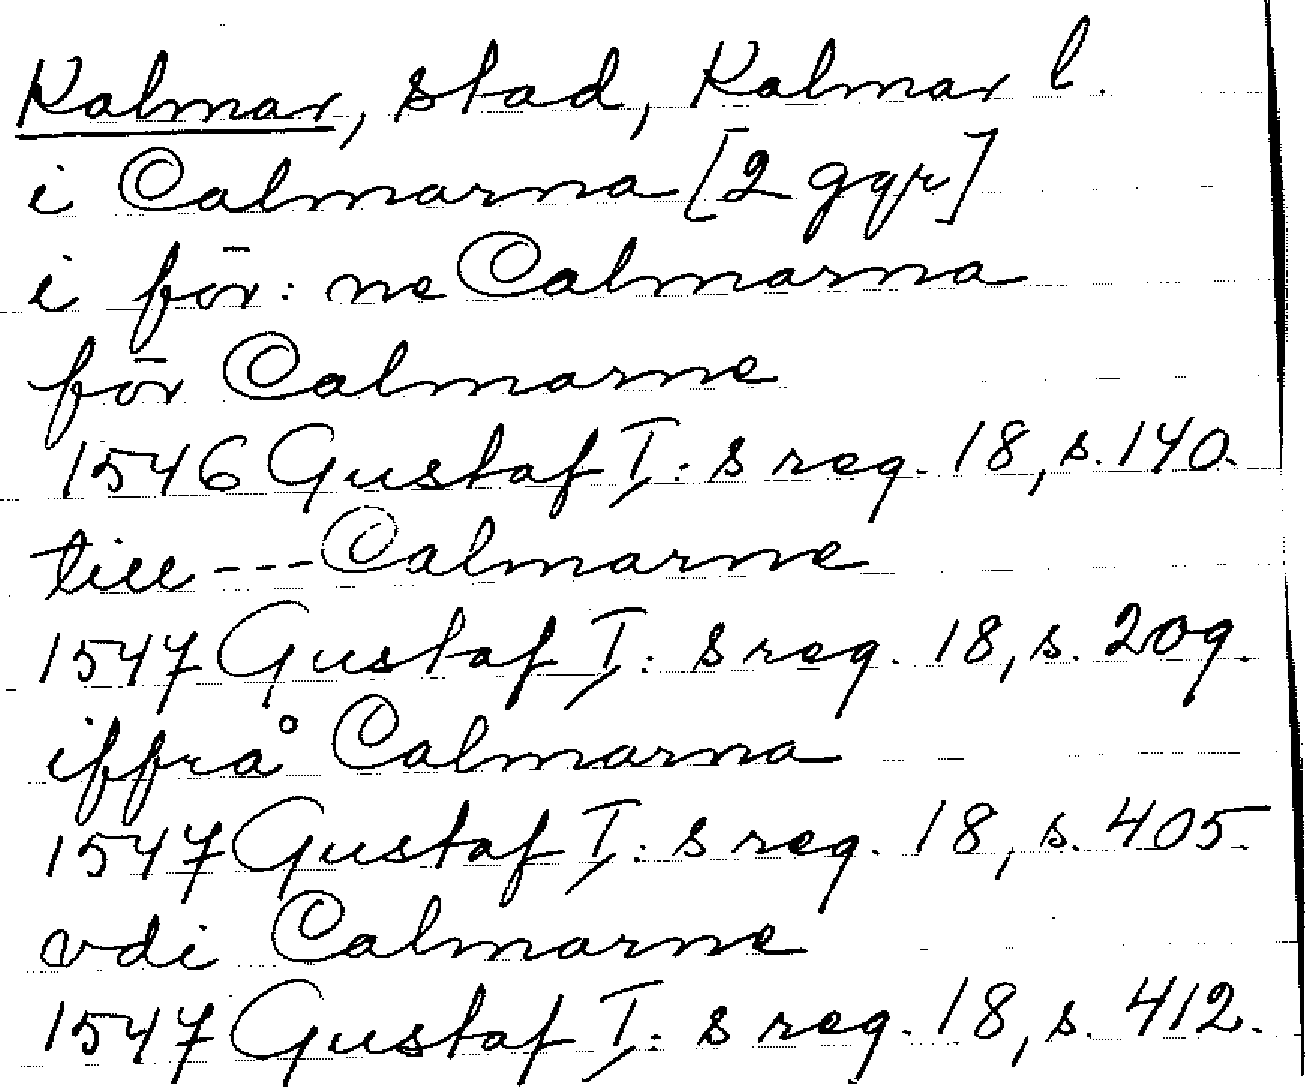 Kalmar, stad, Kalmar l.
i Calmarna [2 ggr]
i för: ne Calmarna
för Calmarne
1546 Gustaf I: s reg. 18, s. 140.
till --- Calmarne
1547 Gustaf I: s reg. 18, s. 209.
iffrå Calmarna
1547 Gustaf I: s reg. 18, s. 405.
vdi Calmarne
1547 Gustaf I: s reg. 18, s. 412.